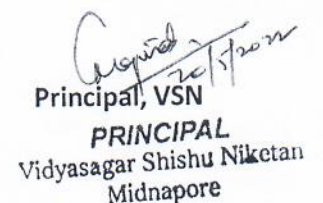 20/5/2022
Principal, VSN
PRINCIPAL
Vidyasagar Shishu Niketan
Midnapore